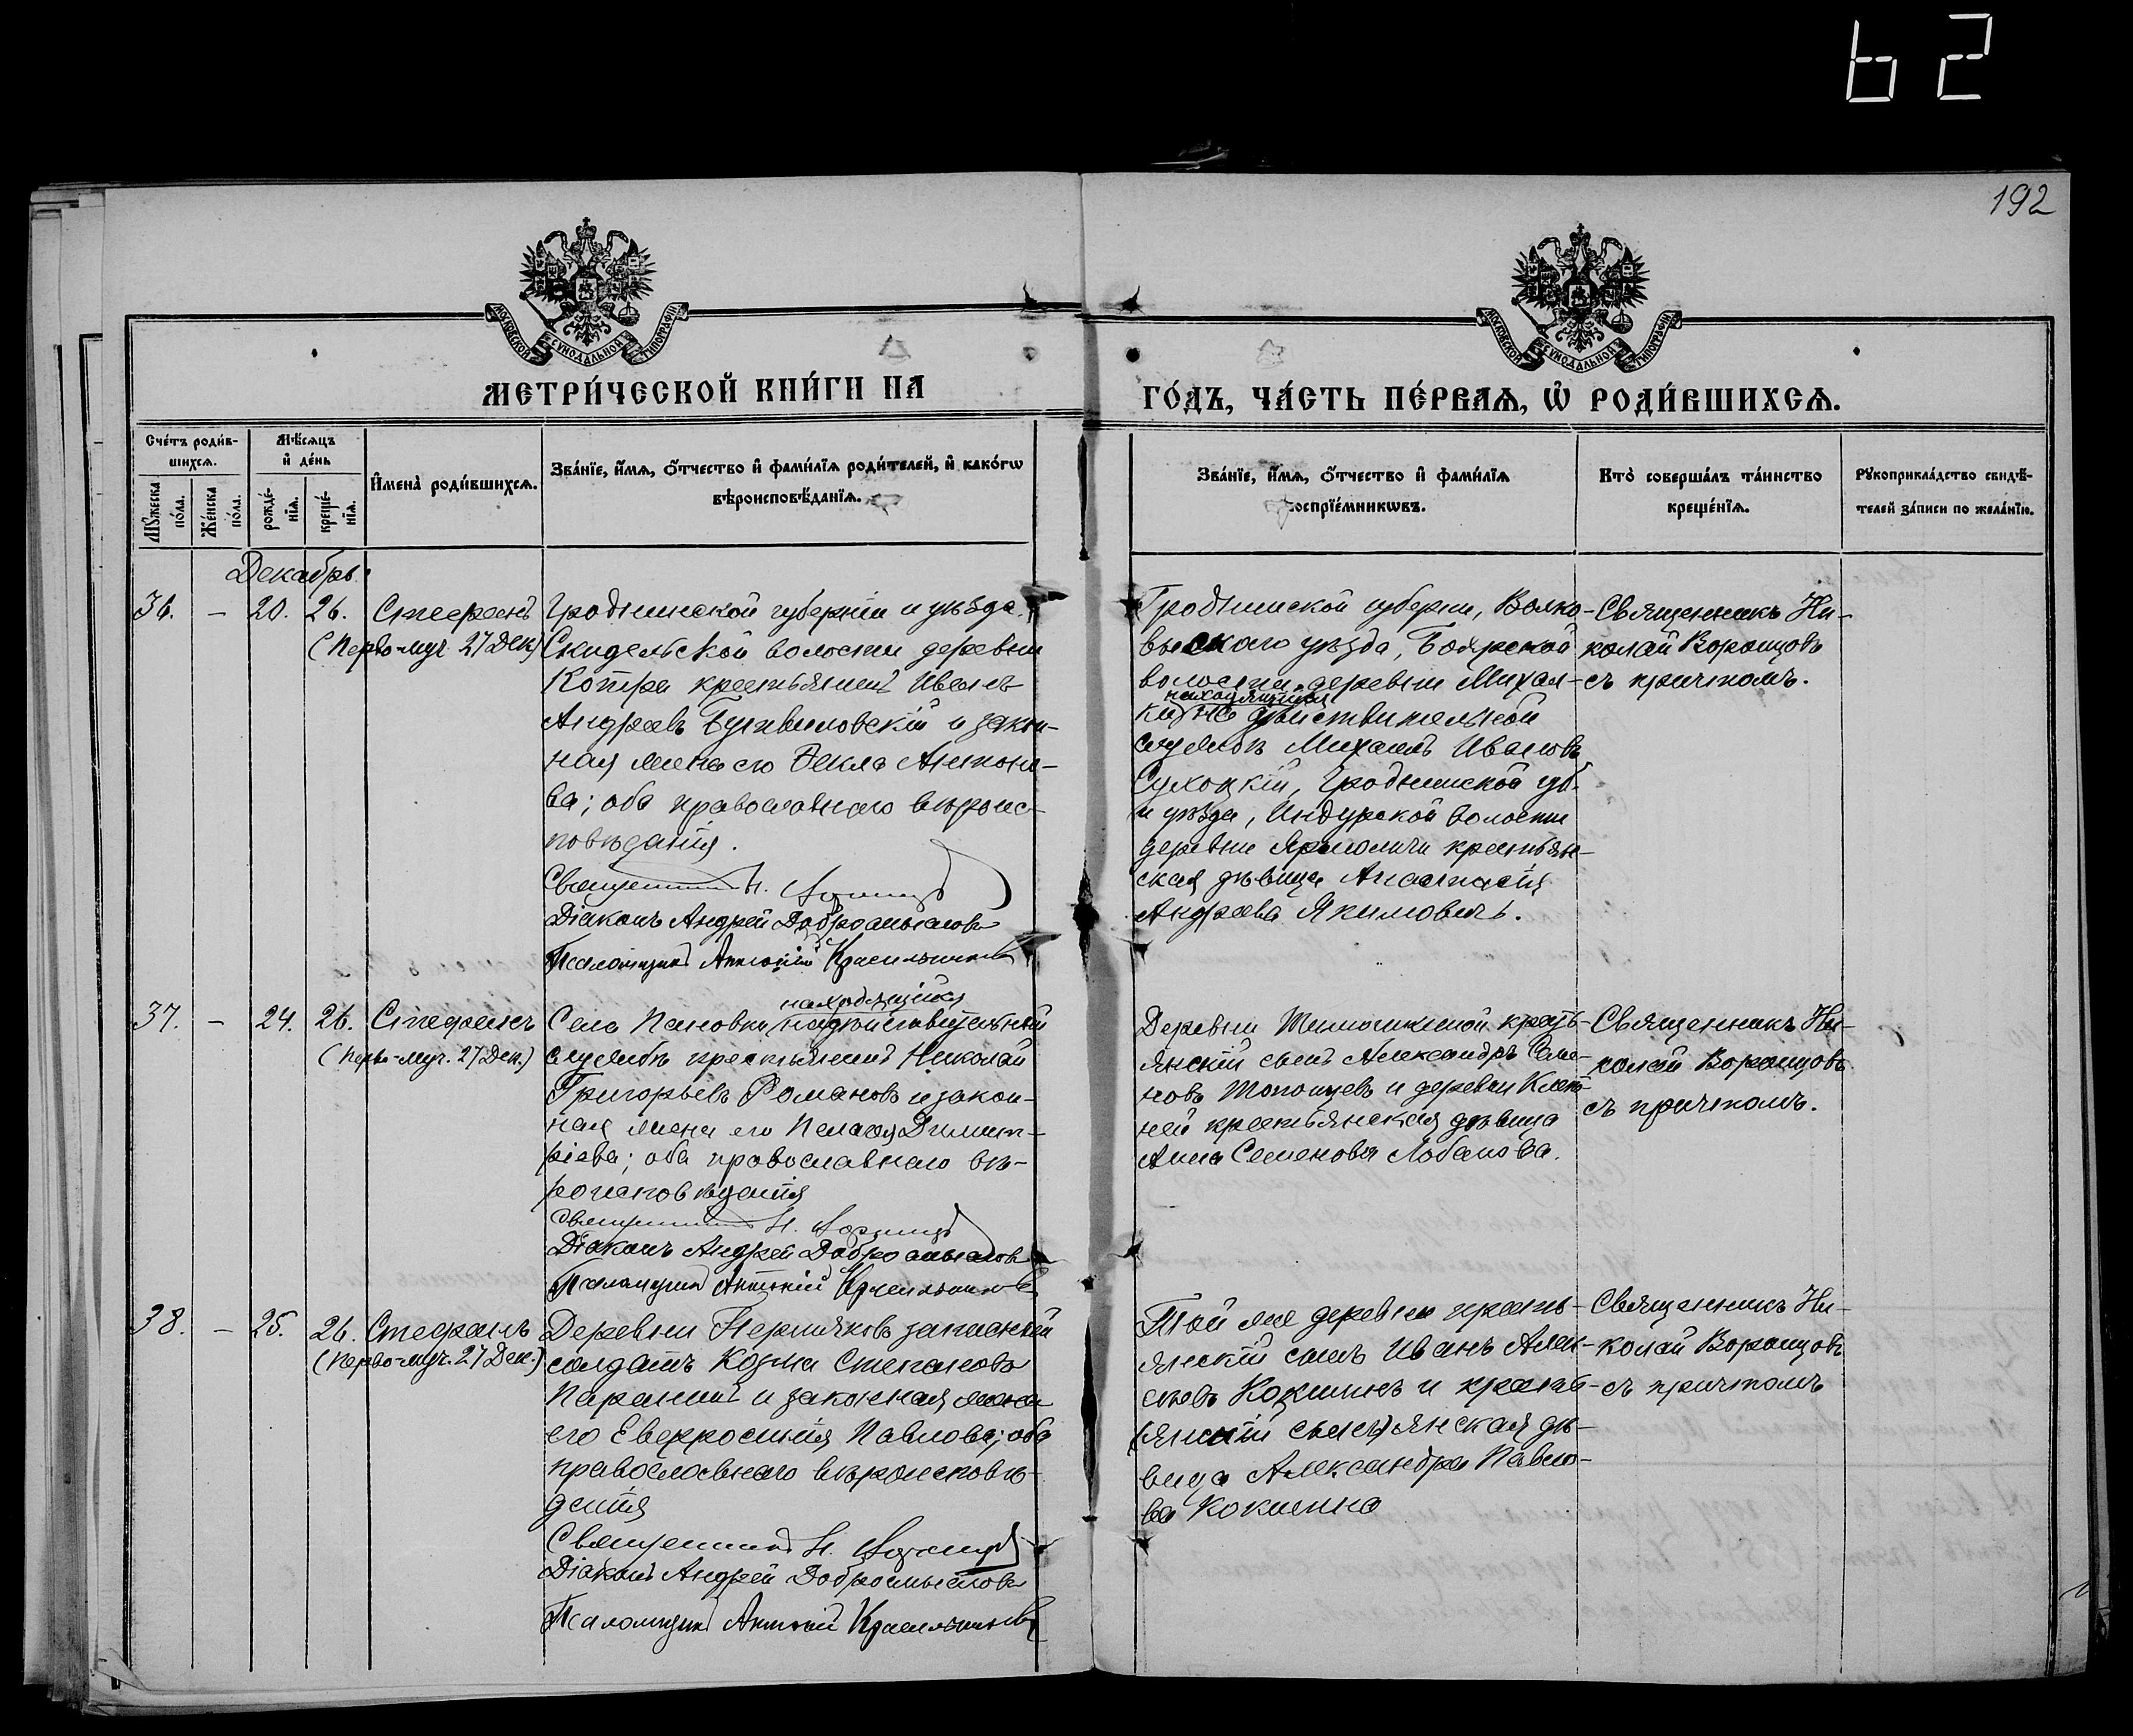 62
192
МОСКОВСКОЙ СѴНОДАЛЬНОЙ ТИПОГРАФІИ
МОСКОВСКОЙ СѴНОДАЛЬНОЙ ТИПОГРАФІИ
МЕТРИ́ЧЕСКОЙ КНИ́ГИ НА
ГО́ДЪ, ЧА́СТЬ ПЕ́РВАѦ, Ѡ҆ РОДИ́ВШИХСѦ.
Сче́тъ роди́в-
шихсѧ.
Мѣ́сѧцъ
и҆ де́нь
Мꙋ́жеска
по́ла.
Же́нска
по́ла.
рожде́-
нїѧ.
креще́-
нїѧ.
И҆мена̀ роди́вшихсѧ.
Зва́нїе, и҆́мѧ, о҆́тчество и҆ фами́лїѧ роди́телей, и҆ како́гѡ
вѣроисповѣ́данїѧ.
Зва́нїе, и҆́мѧ, о҆́тчество и҆ фами́лїѧ
воспрїе́мникѡвъ.
Кто̀ соверша́лъ та́инство
креще́нїѧ.
Рꙋкоприкла́дство свидѣ́-
телей за́писи по жела́нїю.
Декабрь.
36. – 20. 26. Стефанъ
(Перво-муч. 27 Дек)
Гродненской губерніи и уѣзда
Скидельской волости деревни
Котра крестьянинъ Иванъ
Андреевъ и закон-
ная жена его Ѳекла Антоно-
ва; оба православнаго вѣроис-
повѣданія.
Священникъ Н. Воронцовъ
Діаконъ Андрей Добромысловъ
Псаломщикъ Антоній Красильниковъ
Гродненской губерни, Волко-
выскаго уѣзда, Боярской
волости, деревни Михал-
находящійся
ки на дѣйствительной
службѣ Михаилъ Ивановъ
Сухоцкій, Гродненской губ.
и уѣзда, Индурской волости
деревни Ярмоличи крестьян-
ская дѣвица Анастасія
Андреева Якимовичъ.
Священникъ Ни-
колай Воронцовъ
съ причтомъ.
37. – 24. 26. Стефанъ
(Перво-муч. 27 Дек.)
находящійся
Села Пановки, на дѣйствительной
службѣ крестьянинъ Николай
Григорьевъ Романовъ и закон-
ная жена его Пелагея Димит-
ріева; оба православнаго вѣ-
роисповѣданія
Священникъ Н. Воронцовъ
Діаконъ Андрей Добромысловъ
Псаломщикъ Антоній Красильниковъ
Деревни крестъ-
янскій сынъ Александръ Семе-
новъ и деревни
ней крестьянская дѣвица
Анна Семенова Лобанова.
Священникъ Ни-
колай Воронцовъ
съ причтомъ.
38. – 25. 26. Стефанъ
(Перво-муч. 27 Дек.)
Деревни запасный
солдатъ Козма Степановъ
Паранинъ и законная жена
его Евфросинія Павлова; оба
православнаго вѣроисповѣ-
данія
Священникъ Н. Воронцовъ
Діаконъ Андрей Добромысловъ
Псаломщикъ Антоній Красильниковъ
Той же деревни кресть-
янскій сынъ Иванъ Алек-
сѣевъ Кокшинъ и кресть-
(янскій сынъ) янская дѣ-
вица Александра Павло-
ва Кокшина
Священникъ Ни-
колай Воронцовъ
съ причтомъ